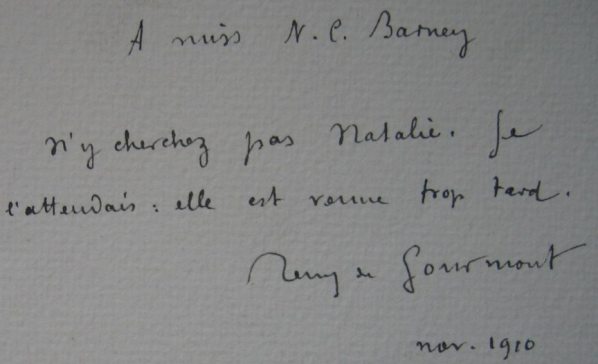 A miss N. C. Barney
N'y cherchez pas Natalie. Je
l'attendais : elle est venue trop tard.
Remy de Gourmont
nov. 1910